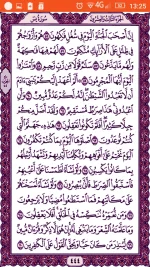 4G 13:25
إِنَّ أَصْحَٰبَ ٱلْجَنَّةِ ٱلْيَوْمَ فِى شُغُلٍ فَٰكِهُونَ ۝ هُمْ وَأَزْوَٰجُهُمْ
فِى ظِلَٰلٍ عَلَى ٱلْأَرَآئِكِ مُتَّكِـُٔونَ ۝ لَهُمْ فِيهَا فَٰكِهَةٌ وَلَهُم
مَّا يَدَّعُونَ ۝ سَلَٰمٌ قَوْلًا مِّن رَّبٍّ رَّحِيمٍ ۝ وَٱمْتَٰزُوا۟
ٱلْيَوْمَ أَيُّهَا ٱلْمُجْرِمُونَ ۝ أَلَمْ أَعْهَدْ إِلَيْكُمْ يَٰبَنِىٓ ءَادَمَ
أَن لَّا تَعْبُدُوا۟ ٱلشَّيْطَٰنَ إِنَّهُۥ لَكُمْ عَدُوٌّ مُّبِينٌ ۝
وَأَنِ ٱعْبُدُونِى هَٰذَا صِرَٰطٌ مُّسْتَقِيمٌ ۝ وَلَقَدْ أَضَلَّ مِنكُمْ
جِبِلًّا كَثِيرًا أَفَلَمْ تَكُونُوا۟ تَعْقِلُونَ ۝ هَٰذِهِۦ جَهَنَّمُ ٱلَّتِى
كُنتُمْ تُوعَدُونَ ۝ ٱصْلَوْهَا ٱلْيَوْمَ بِمَا كُنتُمْ تَكْفُرُونَ ۝
ٱلْيَوْمَ نَخْتِمُ عَلَىٰٓ أَفْوَٰهِهِمْ وَتُكَلِّمُنَآ أَيْدِيهِمْ وَتَشْهَدُ أَرْجُلُهُم
بِمَا كَانُوا۟ يَكْسِبُونَ ۝ وَلَوْ نَشَآءُ لَطَمَسْنَا عَلَىٰٓ أَعْيُنِهِمْ
فَٱسْتَبَقُوا۟ ٱلصِّرَٰطَ فَأَنَّىٰ يُبْصِرُونَ ۝ وَلَوْ نَشَآءُ لَمَسَخْنَٰهُمْ
عَلَىٰ مَكَانَتِهِمْ فَمَا ٱسْتَطَٰعُوا۟ مُضِيًّا وَلَا يَرْجِعُونَ ۝
وَمَن نُّعَمِّرْهُ نُنَكِّسْهُ فِى ٱلْخَلْقِ أَفَلَا يَعْقِلُونَ ۝
وَمَا عَلَّمْنَٰهُ ٱلشِّعْرَ وَمَا يَنۢبَغِى لَهُۥٓ إِنْ هُوَ إِلَّا ذِكْرٌ وَقُرْءَانٌ مُّبِينٌ ۝
لِّيُنذِرَ مَن كَانَ حَيًّا وَيَحِقَّ ٱلْقَوْلُ عَلَى ٱلْكَٰفِرِينَ ۝
٤٤٤